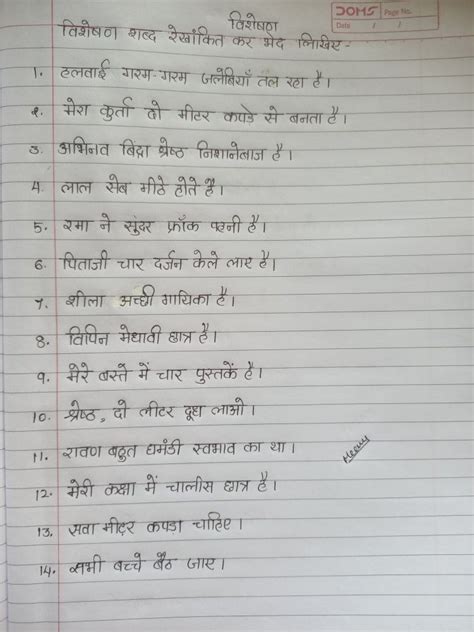 DOMS Page No.
Date / /
विशेषण
विशेषण शब्द रेखांकित कर भेद लिखिए -
1. हलवाई गरम-गरम जलेबियाँ तल रहा है।
2. मेरा कुर्ता दो मीटर कपड़े से बनता है।
3. अभिनव बिंद्रा श्रेष्ठ निशानेबाज है।
4. लाल सेब मीठे होते हैं।
5. रमा ने सुंदर फ्रॉक पहनी है।
6. पिताजी चार दर्जन केले लाए है।
7. शीला अच्छी गायिका है।
8. विपिन मेधावी छात्र है।
9. मेरे बस्ते में चार पुस्तकें है।
10. श्रेष्ठ, दो लीटर दूध लाओ।
11. रावण बहुत घमंडी स्वभाव का था।
12. मेरी कक्षा में चालीस छात्र है।
13. सवा मीटर कपडा चाहिए।
14. सभी बच्चे बैठ जाए।